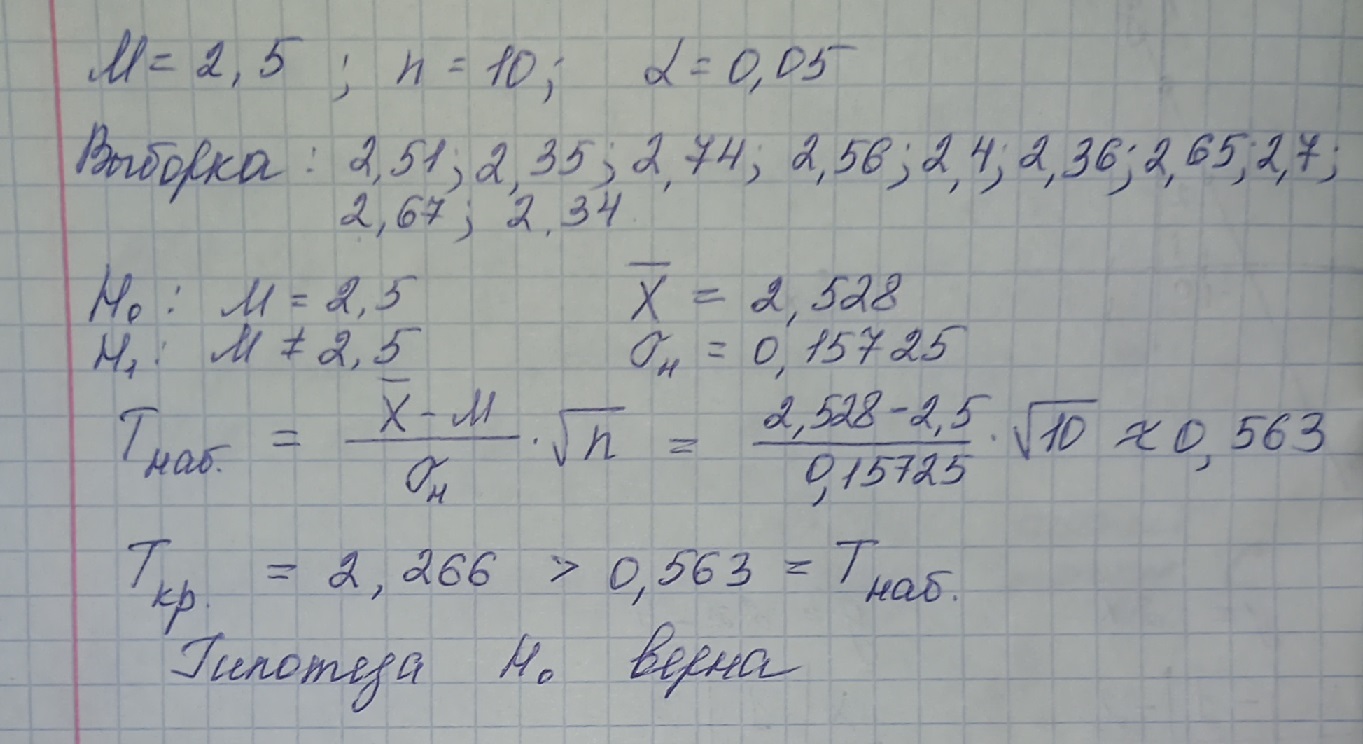 M = 2,5 ; n = 10; α = 0,05
Выборка : 2,51; 2,35; 2,74; 2,56; 2,4; 2,36; 2,65; 2,7;
2,67; 2,34
H₀ : M = 2,5 X̅ = 2,528
H₁ : M ≠ 2,5 σн = 0,15725
Tнаб. = (X̅ - M)/σн · √n = (2,528 - 2,5)/0,15725 · √10 ≈ 0,563
Tкр. = 2,266 > 0,563 = Tнаб.
Гипотеза H₀ верна